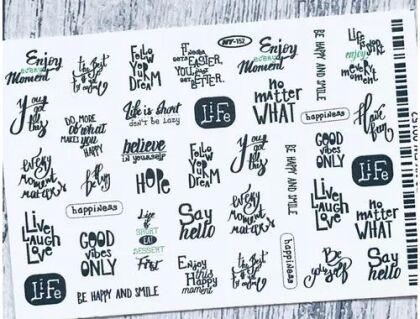 Enjoy
EVERY
Moment
The Best
is yet
to come
Follow
YoUR
DREAM
IT NEVER
GETS EASIER,
YOU JUST
GET
BETTER.
NP-152
Enjoy
EVERY
Moment
BE HAPPY AND SMILE
Life is
short
enjoy
every
moment
You
got
this
DO MORE
OF WHAT
MAKES
YOU
HAPPY
Life is short
don't be lazy
LiFe
The Best
is yet
to come
No
matter
WHAT
happiness
Have
fun
every
Moment
matters
believe
in yourself
HOPE
Follow
YoUR
DREAM
You
got
this
BE HAPPY AND SMILE
GOOD
vibes
ONLY
LiFe
happiness
Live
Laugh
Love
GOOD
vibes
ONLY
Life is
SHORT
EAT
DESSERT
First
Say
hello
every
Moment
matters
Live
Laugh
Love
No
matter
WHAT
LiFe
BE HAPPY AND SMILE
Enjoy
this
Happy
moment
The Best
is yet
to come
happiness
Be
yourself
Say
hello